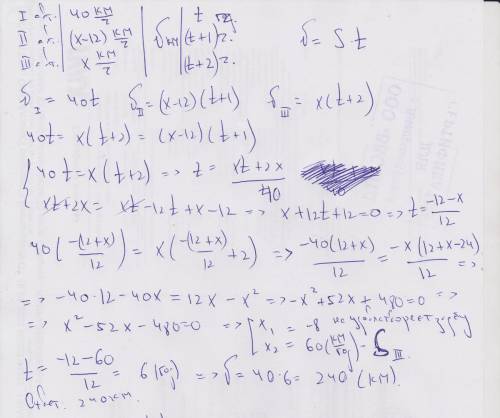 I авт. | 40 км/ч | t ч.
II авт. | (x-12) км/ч | S км | (t+1) ч.
III авт. | x км/ч | (t+2) ч.
S = S·t
S_I = 40t S_II = (x-12)(t+1) S_III = x(t+2)
40t = x(t+2) = (x-12)(t+1)
{ 40t = x(t+2) => t = (xt+2x)/40
xt+2x = xt-12t+x-12 => x+12t+12=0 => t = (-12-x)/12
40(-(12+x)/12) = x(-(12+x)/12 + 2) => -40(12+x)/12 = -x(12+x-24)/12 =>
=> -40·12-40x = 12x-x² => -x²+52x+480=0 =>
=> x²-52x-480=0 => [ x₁ = -8 не удовлетворяет
x₂ = 60 - S_III
t = (-12-60)/12 = 6 => S = 40·6 = 240 (км).
Ответ. 240км.